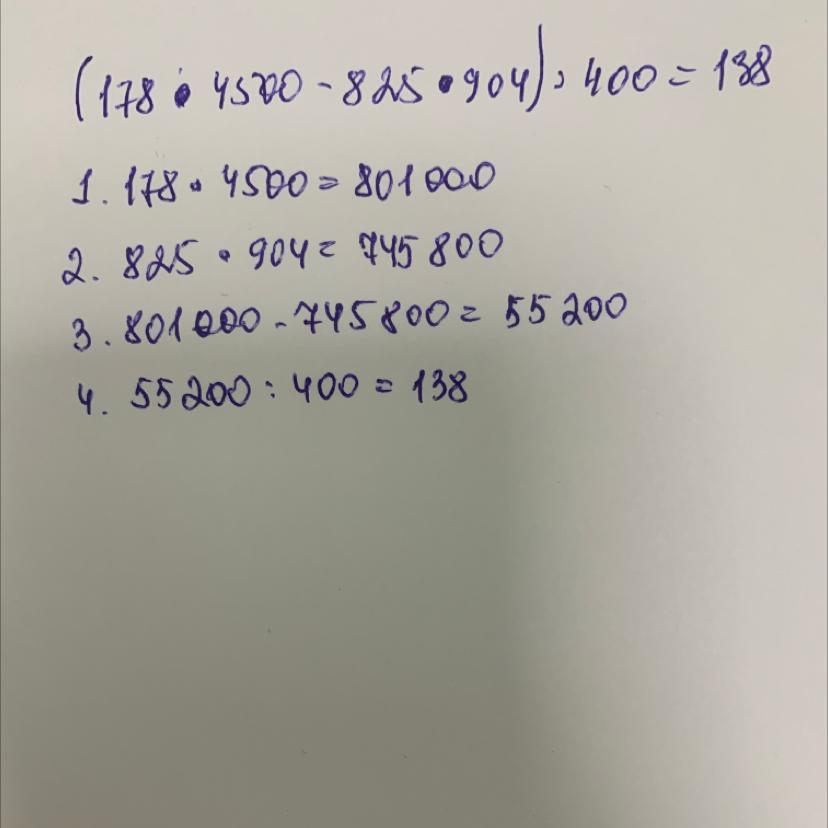 (178 • 4500 - 825 • 904) : 400 = 138
1. 178 • 4500 = 801000
2. 825 • 904 = 745 800
3. 801000 - 745800 = 55 200
4. 55200 : 400 = 138